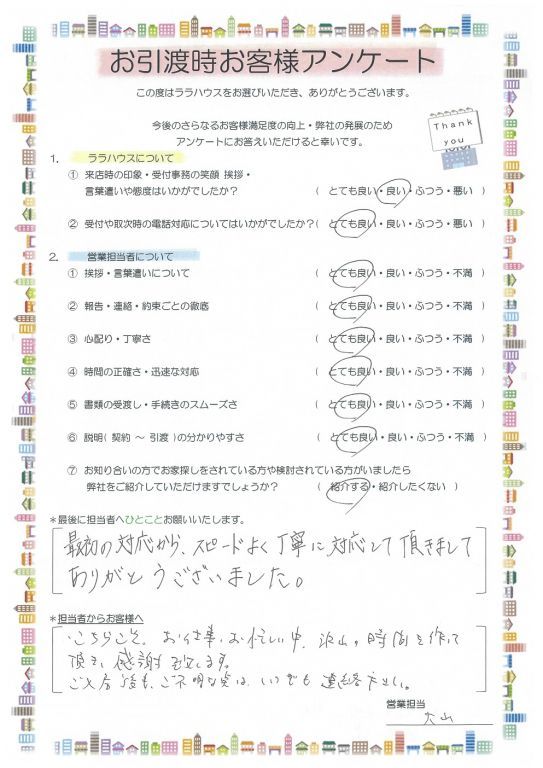 お引渡時お客様アンケート
この度はララハウスをお選びいただき、ありがとうございます。
今後のさらなるお客様満足度の向上・弊社の発展のため
アンケートにお答えいただけると幸いです。
Thank
you
1. ララハウスについて
① 来店時の印象・受付事務の笑顔 挨拶・
言葉遣いや態度はいかがでしたか? ( とても良い・良い・ふつう・悪い )
② 受付や取次時の電話対応についてはいかがでしたか?( とても良い・良い・ふつう・悪い )
2. 営業担当者について
① 挨拶・言葉遣いについて ( とても良い・良い・ふつう・不満 )
② 報告・連絡・約束ごとの徹底 ( とても良い・良い・ふつう・不満 )
③ 心配り・丁寧さ ( とても良い・良い・ふつう・不満 )
④ 時間の正確さ・迅速な対応 ( とても良い・良い・ふつう・不満 )
⑤ 書類の受渡し・手続きのスムーズさ ( とても良い・良い・ふつう・不満 )
⑥ 説明( 契約 ~ 引渡 )の分かりやすさ ( とても良い・良い・ふつう・不満 )
⑦ お知り合いの方でお家探しをされている方や検討されている方がいましたら
弊社をご紹介していただけますでしょうか? ( 紹介する・紹介したくない )
*最後に担当者へひとことお願いいたします。
最初の対応から、スピードよく丁寧に対応して頂きまして
ありがとうございました。
*担当者からお客様へ
こちらこそ、お仕事お忙しい中、沢山の時間を作って
頂き、感謝致します。
ご入居後も、ご不明な点は、いつでも連絡下さい。
営業担当
大山